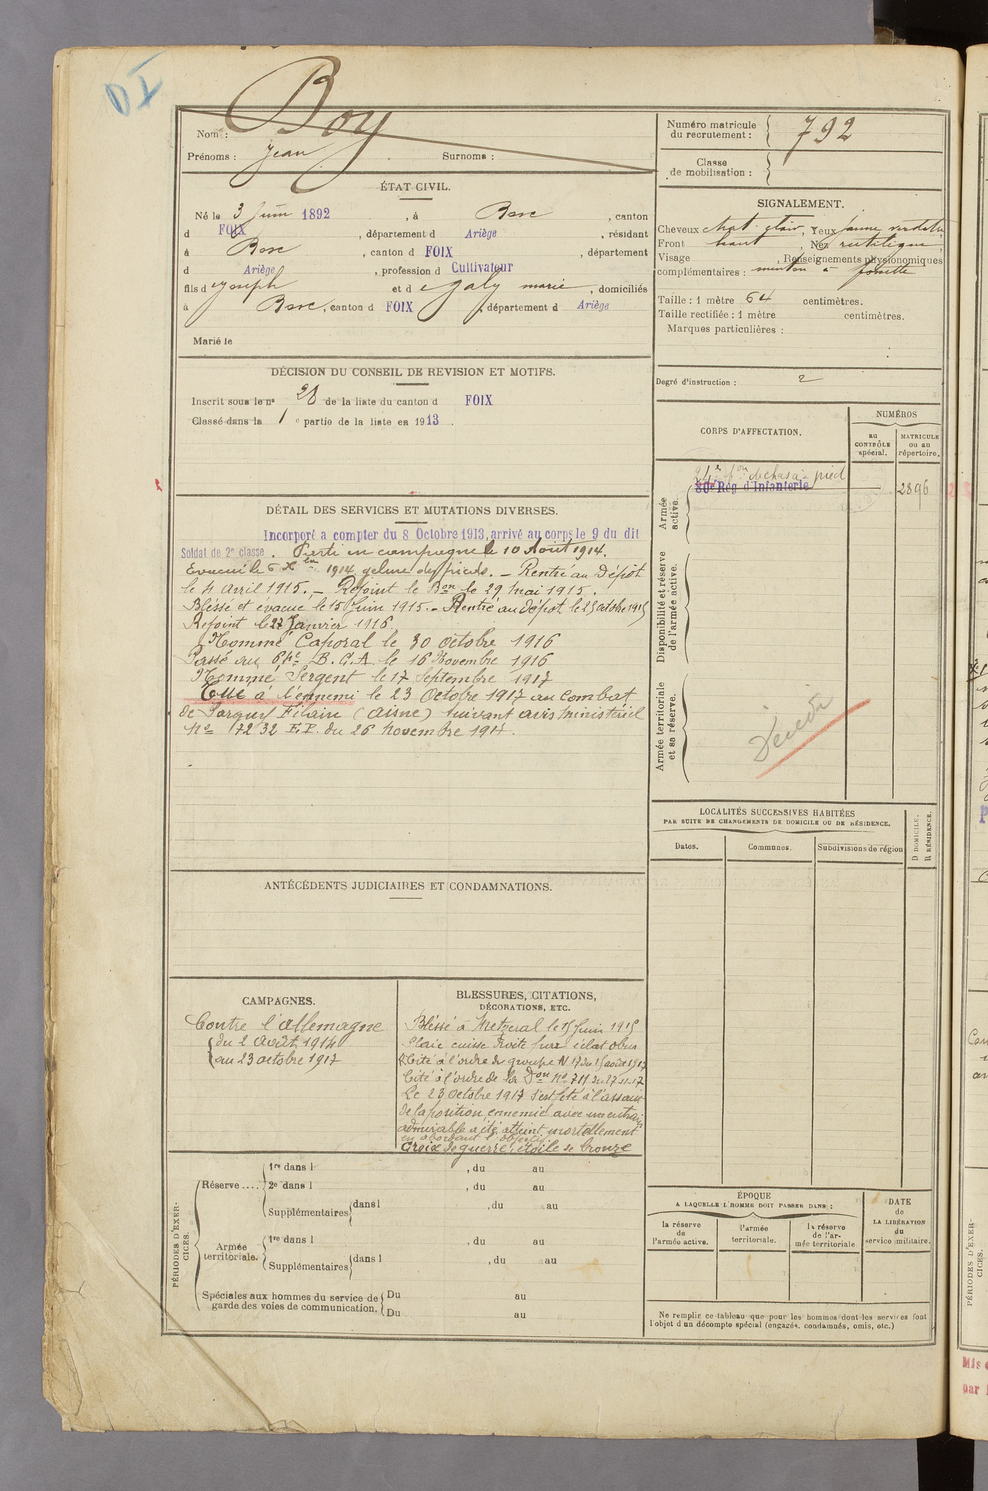 Boy
Nom :
Prénoms : Jean Surnoms :
Numéro matricule du recrutement : 792
Classe de mobilisation :
ÉTAT CIVIL.
Né le 3 Juin 1892, à Bosc, canton
d FOIX, département d Ariège, résidant
à Bosc, canton d FOIX, département
d Ariège, profession d Cultivateur
fils d Joseph et d Galy marie, domiciliés
à Bosc, canton d FOIX, département d Ariège
Marié le
SIGNALEMENT.
Cheveux chat. clair, Yeux jaune verdâtre
Front haut, Nez rectiligne,
Visage , Renseignements physionomiques
complémentaires : menton à fossette
Taille : 1 mètre 64 centimètres.
Taille rectifiée : 1 mètre centimètres.
Marques particulières :
Degré d'instruction : 2
DÉCISION DU CONSEIL DE REVISION ET MOTIFS.
Inscrit sous le nº 28 de la liste du canton d FOIX
Classé dans la 1 e partie de la liste en 1913.
CORPS D'AFFECTATION.
NUMÉROS
au CONTRÔLE spécial.
MATRICULE ou au répertoire.
Armée active.
24e Bon de chas. à pied
80e Rég d'Infanterie
2896
Disponibilité et réserve de l'armée active.
Armée territoriale et sa réserve.
Décédé
DÉTAIL DES SERVICES ET MUTATIONS DIVERSES.
Incorporé à compter du 8 Octobre 1913, arrivé au corps le 9 du dit
Soldat de 2e classe. Parti en campagne le 10 Août 1914.
Evacué le 6 Xbre 1914 gelure des pieds. – Rentré au Dépôt
le 4 avril 1915. – Rejoint le Bon le 29 mai 1915.
Blessé et évacué le 15 Juin 1915. – Rentré au dépôt le 23 octobre 1915
Rejoint le 27 Janvier 1916
Nommé Caporal le 30 octobre 1916
Passé au 64e B.C.A. le 16 Novembre 1916
Nommé Sergent le 17 Septembre 1917
Tué à l'ennemi le 23 Octobre 1917 au combat
de Pargny Filain (Aisne) suivant avis ministériel
No 17232 E.P. du 26 novembre 1917.
LOCALITÉS SUCCESSIVES HABITÉES
PAR SUITE DE CHANGEMENTS DE DOMICILE OU DE RÉSIDENCE.
Dates.
Communes.
Subdivisions de région
D DOMICILE.
R RÉSIDENCE.
ANTÉCÉDENTS JUDICIAIRES ET CONDAMNATIONS.
CAMPAGNES.
Contre l'allemagne
du 2 Août 1914
au 23 octobre 1917
BLESSURES, CITATIONS,
DÉCORATIONS, ETC.
Blessé à Metzeral le 15 Juin 1915
Plaie cuisse droite par éclat obus
Cité à l'ordre du groupe N. 17 du 15 août 1917
Cité à l'ordre de la Don No 711 du 27-11-17
Le 23 octobre 1917 s'est jeté à l'assaut
de la position ennemie avec un entrain
admirable a été atteint mortellement
en abordant l'objectif
Croix de guerre étoile de bronze
PÉRIODES D'EXERCICES.
Réserve ....
1re dans l , du au
2e dans l , du au
Supplémentaires dans l , du au
Armée territoriale.
1re dans l , du au
Supplémentaires dans l , du au
Spéciales aux hommes du service de garde des voies de communication.
Du au
Du au
ÉPOQUE
A LAQUELLE L'HOMME DOIT PASSER DANS :
la réserve de l'armée active.
l'armée territoriale.
la réserve de l'armée territoriale
DATE de LA LIBÉRATION du service militaire.
Ne remplir ce tableau que pour les hommes dont les services font
l'objet d'un décompte spécial (engagés, condamnés, omis, etc.)
PÉRIODES D'EXERCICES.
Mis
par